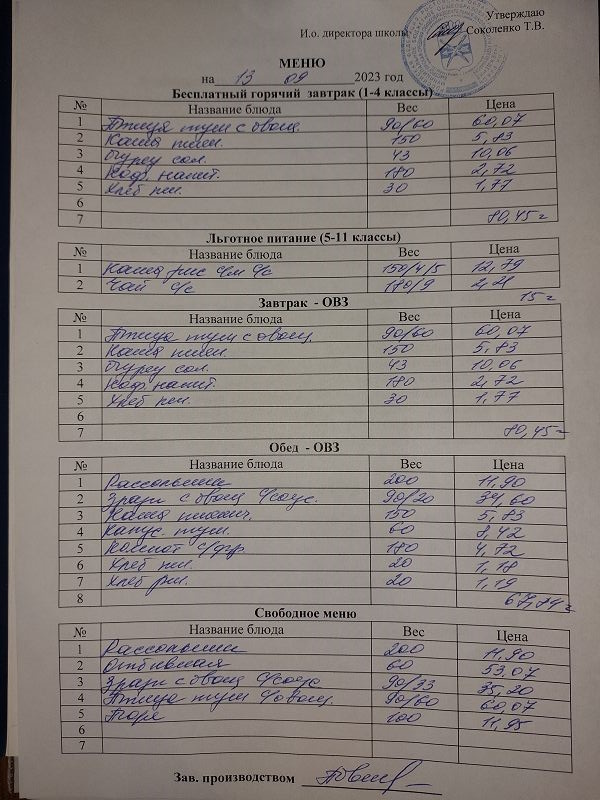 Утверждаю
И.о. директора школы Соколенко Т.В.
МЕНЮ
на 13 09 2023 год
Бесплатный горячий завтрак (1-4 классы)
№ Название блюда Вес Цена
1 Птица туш с овощ. 90/60 60,07
2 Каша пшен. 150 5,83
3 Огурец сол. 43 10,06
4 Коф. напит. 180 2,72
5 Хлеб пш. 30 1,77
6
7 80,45 г
Льготное питание (5-11 классы)
№ Название блюда Вес Цена
1 Каша рис с/м с/с 150/4/5 12,79
2 Чай с/с 180/9
15 г
Завтрак - ОВЗ
№ Название блюда Вес Цена
1 Птица туш с овощ. 90/60 60,07
2 Каша пшен. 150 5,83
3 Огурец сол. 43 10,06
4 Коф напит. 180 2,72
5 Хлеб пш. 30 1,77
6
7 80,45 г
Обед - ОВЗ
№ Название блюда Вес Цена
1 Рассольник 200 11,90
2 Зразы с овощ с/соус. 90/20 34,60
3 Каша 150 5,83
4 Капус. туш. 60 8,42
5 Компот с/фр 180 4,72
6 Хлеб пш. 20 1,18
7 Хлеб рж. 20 1,19
8 67,84 г
Свободное меню
№ Название блюда Вес Цена
1 Рассольник 200 11,90
2 Отбивная 60 53,07
3 Зразы с овощ с/соус 90/33 35,20
4 Птица туш с/овощ. 90/60 60,07
5 Пюре 100 11,95
6
7
Зав. производством